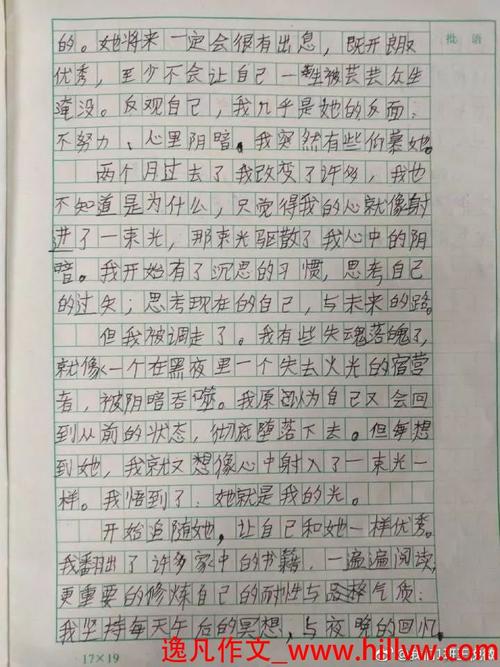 批语
的。她将来一定会很有出息，既开朗又
优秀，至少不会让自己一生被芸芸众生
淹没。反观自己，我几乎是她的反面：
不努力、心里阴暗。我突然有些仰慕她。
两个月过去了我改变了许多，我也
不知道是为什么，只觉得我的心就像射
进了一束光，那束光驱散了我心中的阴
暗。我开始有了沉思的习惯，思考自己
的过失；思考现在的自己，与未来的路。
但我被调走了。我有些失魂落魄了，
就像一个在黑夜里一个失去火光的宿营
者，被阴暗吞噬。我原以为自己又会回
到从前的状态，彻底堕落下去。但每想
到她，我就又想像心中射入了一束光一
样。我悟到了：她就是我的光。
开始追随她，让自己和她一样优秀。
我翻出了许多家中的书籍，一遍遍阅读，
更重要的修炼自己的耐性与气质：
我坚持每天午后的冥想，与夜晚的回忆。
17×19
逸凡作文_www.hillww.com